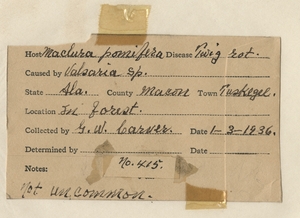 Host Maclura pomifera Disease Twig rot.
Caused by Valsaria sp.
State Ala. County Macon Town Tuskegee.
Location In forest.
Collected by G. W. Carver. Date 1-3-1936.
Determined by Date
Notes: No. 415.
Not uncommon.